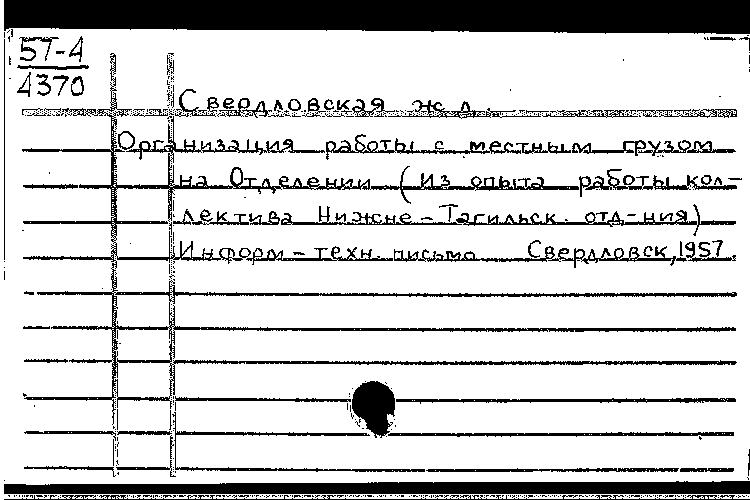 57-4
4370
Свердловская ж.д.
Организация работы с местным грузом
на Отделении (Из опыта работы кол-
лектива Нижне-Тагильск. отд-ния)
Информ-техн. письмо Свердловск, 1957.